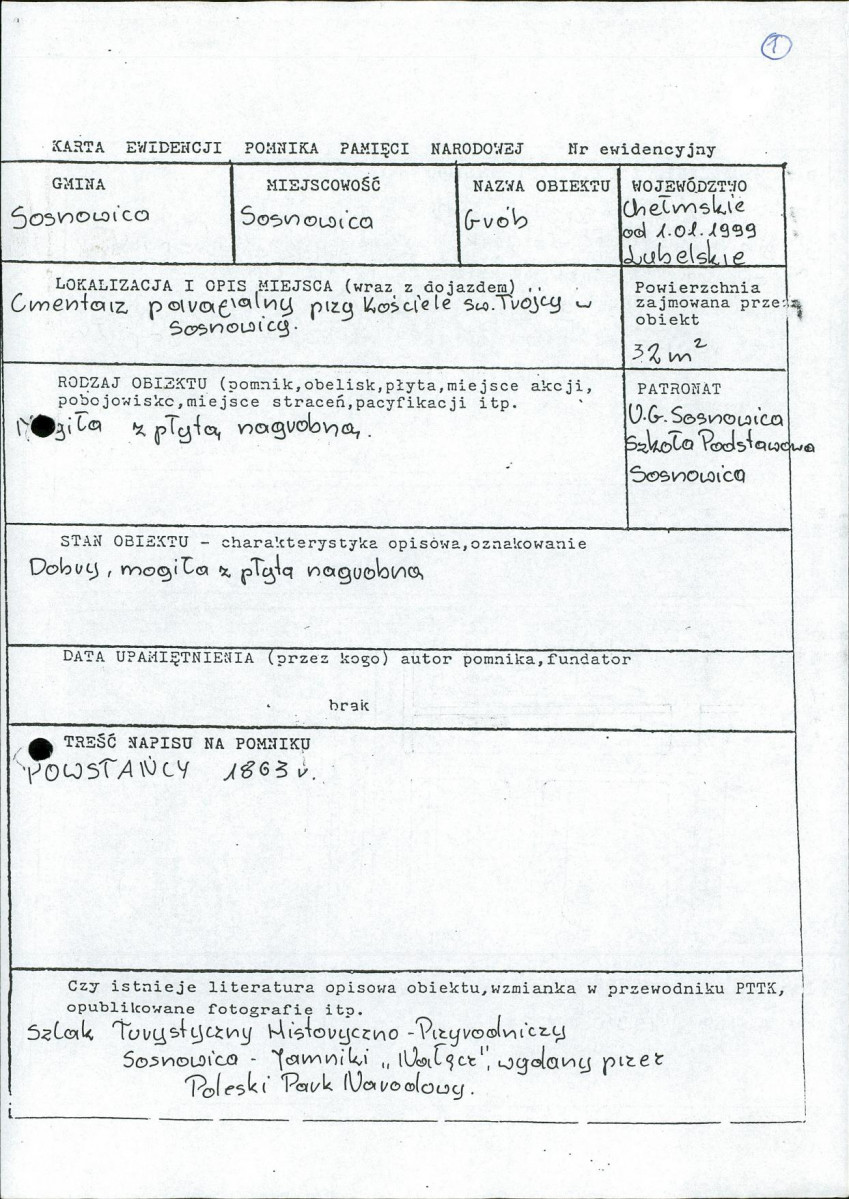 1
KARTA EWIDENCJI POMNIKA PAMIĘCI NARODOWEJ Nr ewidencyjny
GMINA
Sosnowica
MIEJSCOWOŚĆ
Sosnowica
NAZWA OBIEKTU
Grób
WOJEWÓDZTWO
Chełmskie
od 1.01.1999
Lubelskie
LOKALIZACJA I OPIS MIEJSCA (wraz z dojazdem)
Cmentarz parafialny przy Kościele św. Trójcy w
Sosnowicy.
Powierzchnia
zajmowana przez
obiekt
32 m²
RODZAJ OBIEKTU (pomnik,obelisk,płyta,miejsce akcji,
pobojowisko,miejsce straceń,pacyfikacji itp.
Mogiła z płytą nagrobną.
PATRONAT
U.G. Sosnowica
Szkoła Podstawowa
Sosnowica
STAN OBIEKTU - charakterystyka opisowa,oznakowanie
Dobry, mogiła z płytą nagrobną
DATA UPAMIĘTNIENIA (przez kogo) autor pomnika,fundator
brak
TREŚĆ NAPISU NA POMNIKU
POWSTAŃCY 1863 r.
Czy istnieje literatura opisowa obiektu,wzmianka w przewodniku PTTK,
opublikowane fotografie itp.
Szlak Turystyczny Historyczno - Przyrodniczy
Sosnowica - Jamniki
wydany przez
Poleski Park Narodowy.